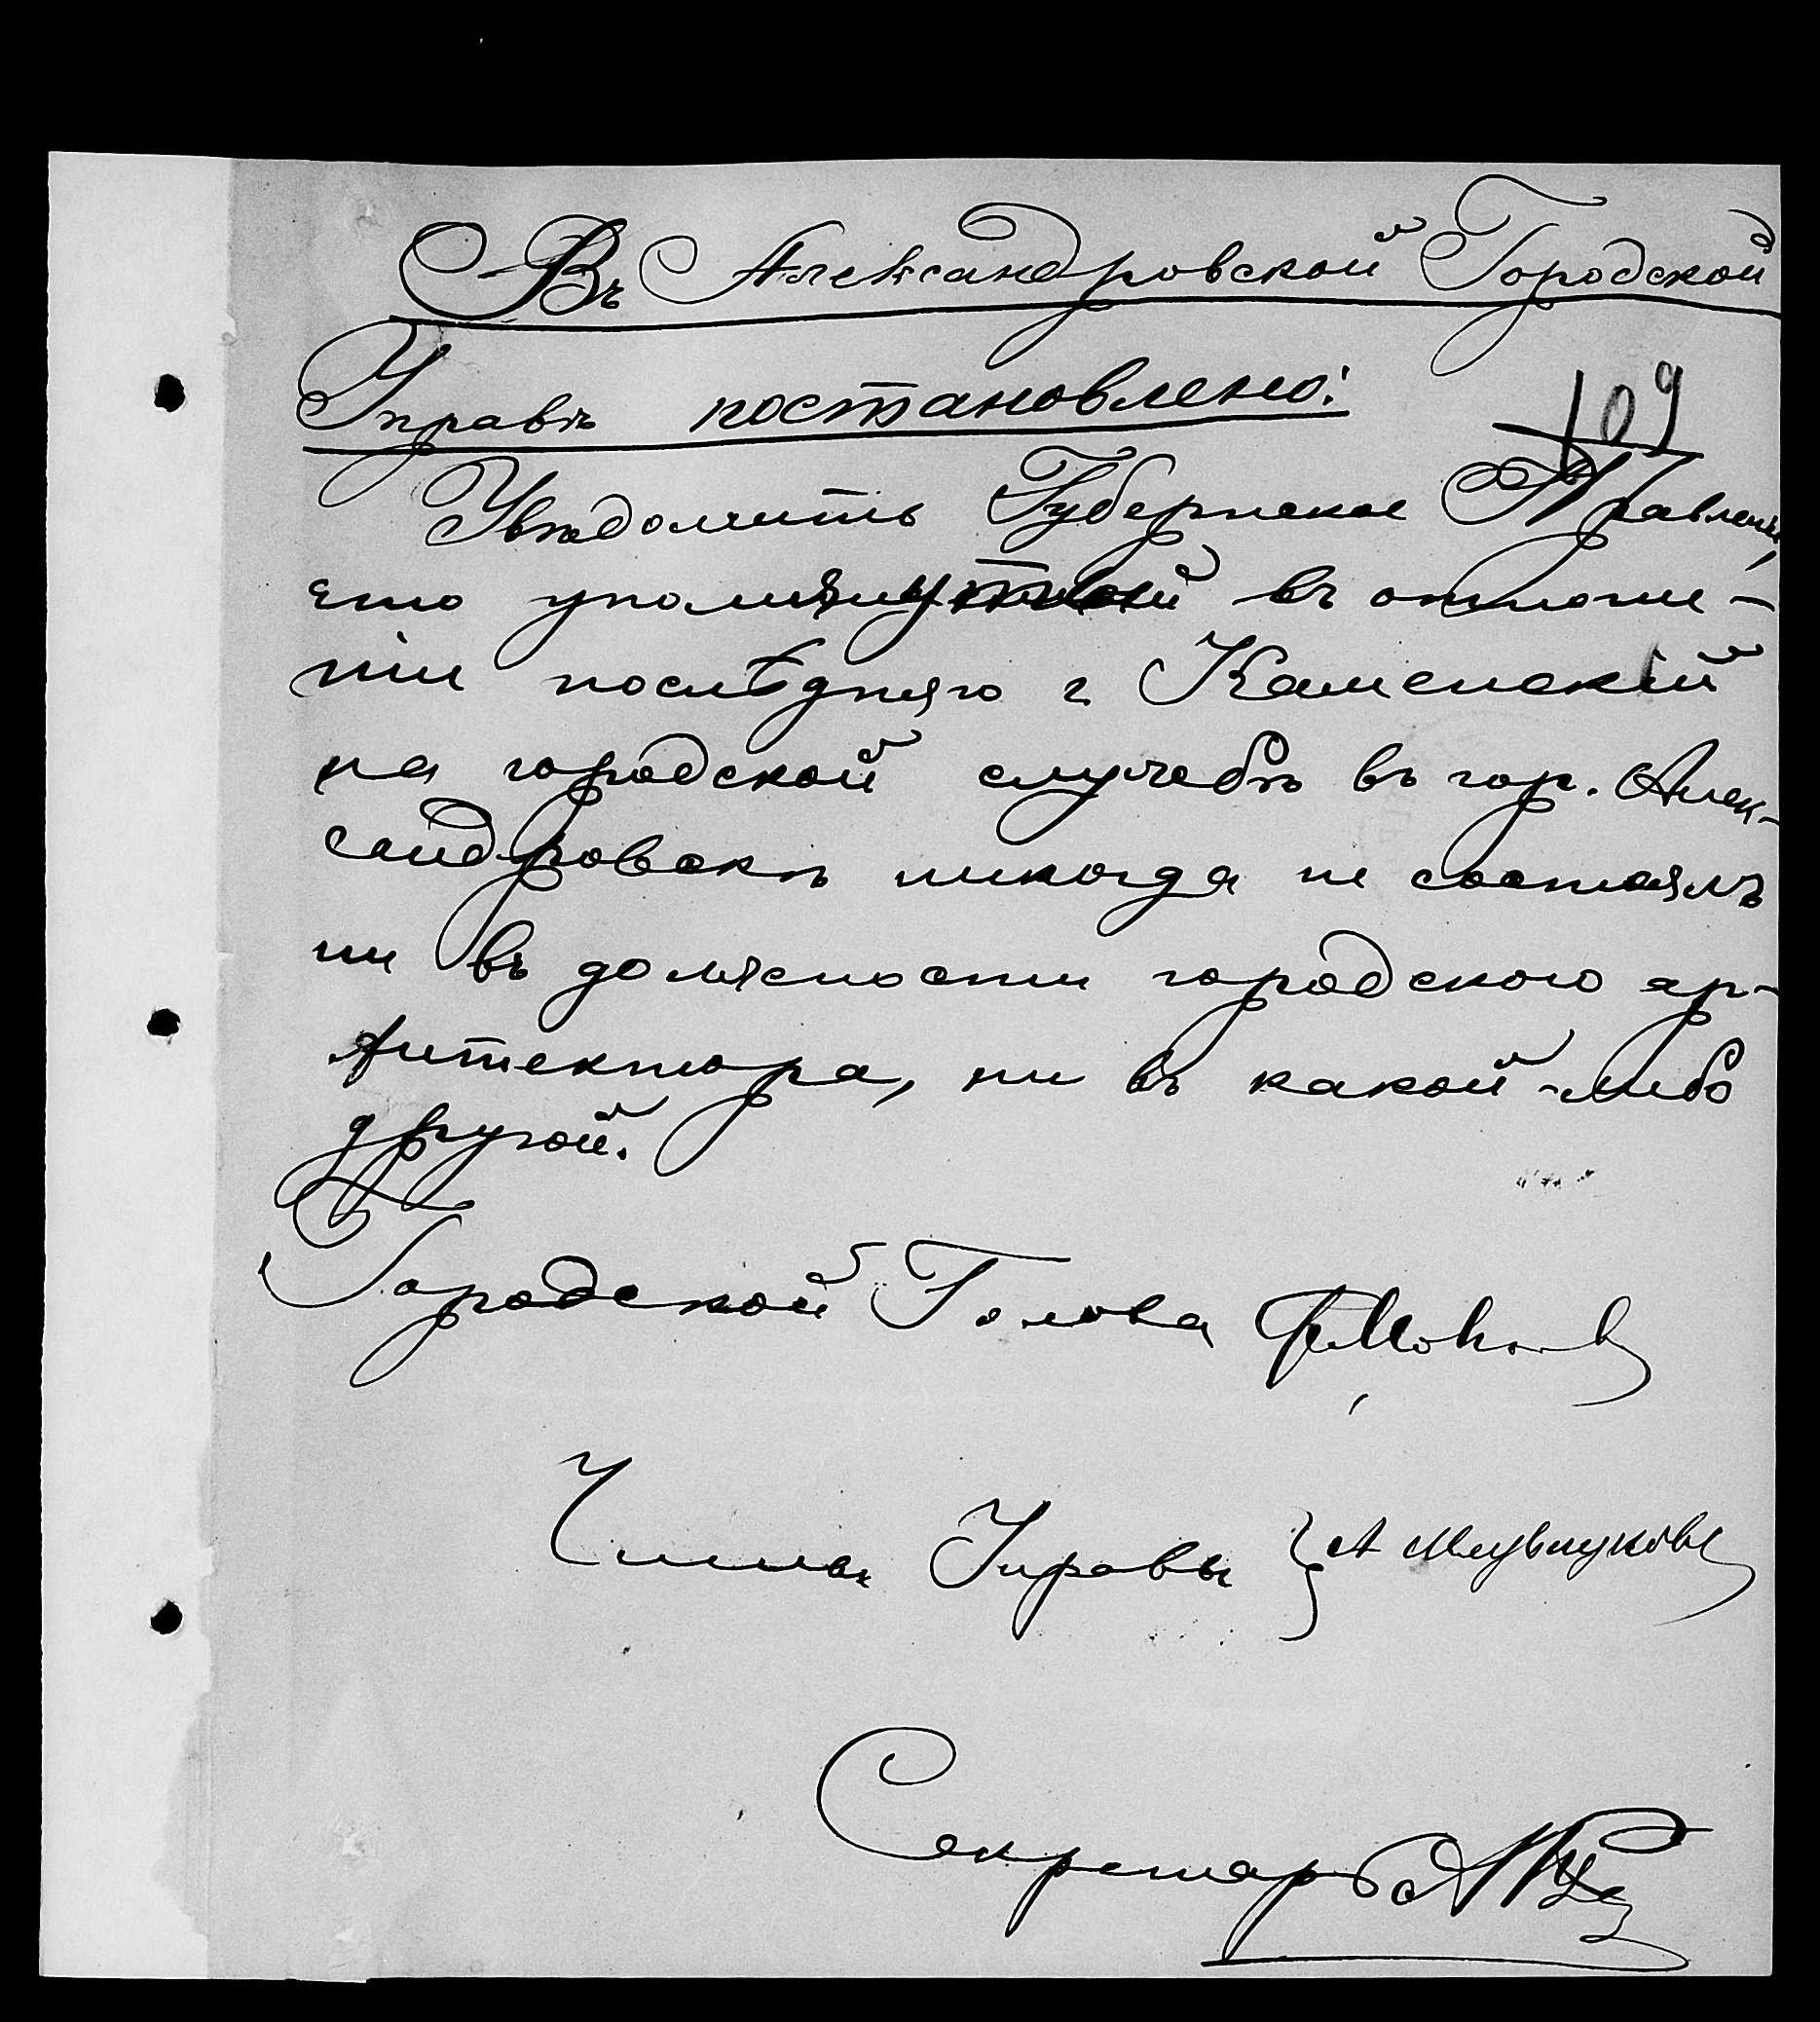 Въ Александровской Городской
109
Управѣ постановлено:
Увѣдомить Губернское Правленіе,
что упомянутый въ отноше-
ніи послѣдняго г. Каменскій
на городской службѣ въ гор. Алек-
сандровскѣ никогда не состоялъ
ни въ должности городского ар-
хитектора, ни въ какой-либо
другой.
Городской Голова
Члены Управы } А
Секретарь